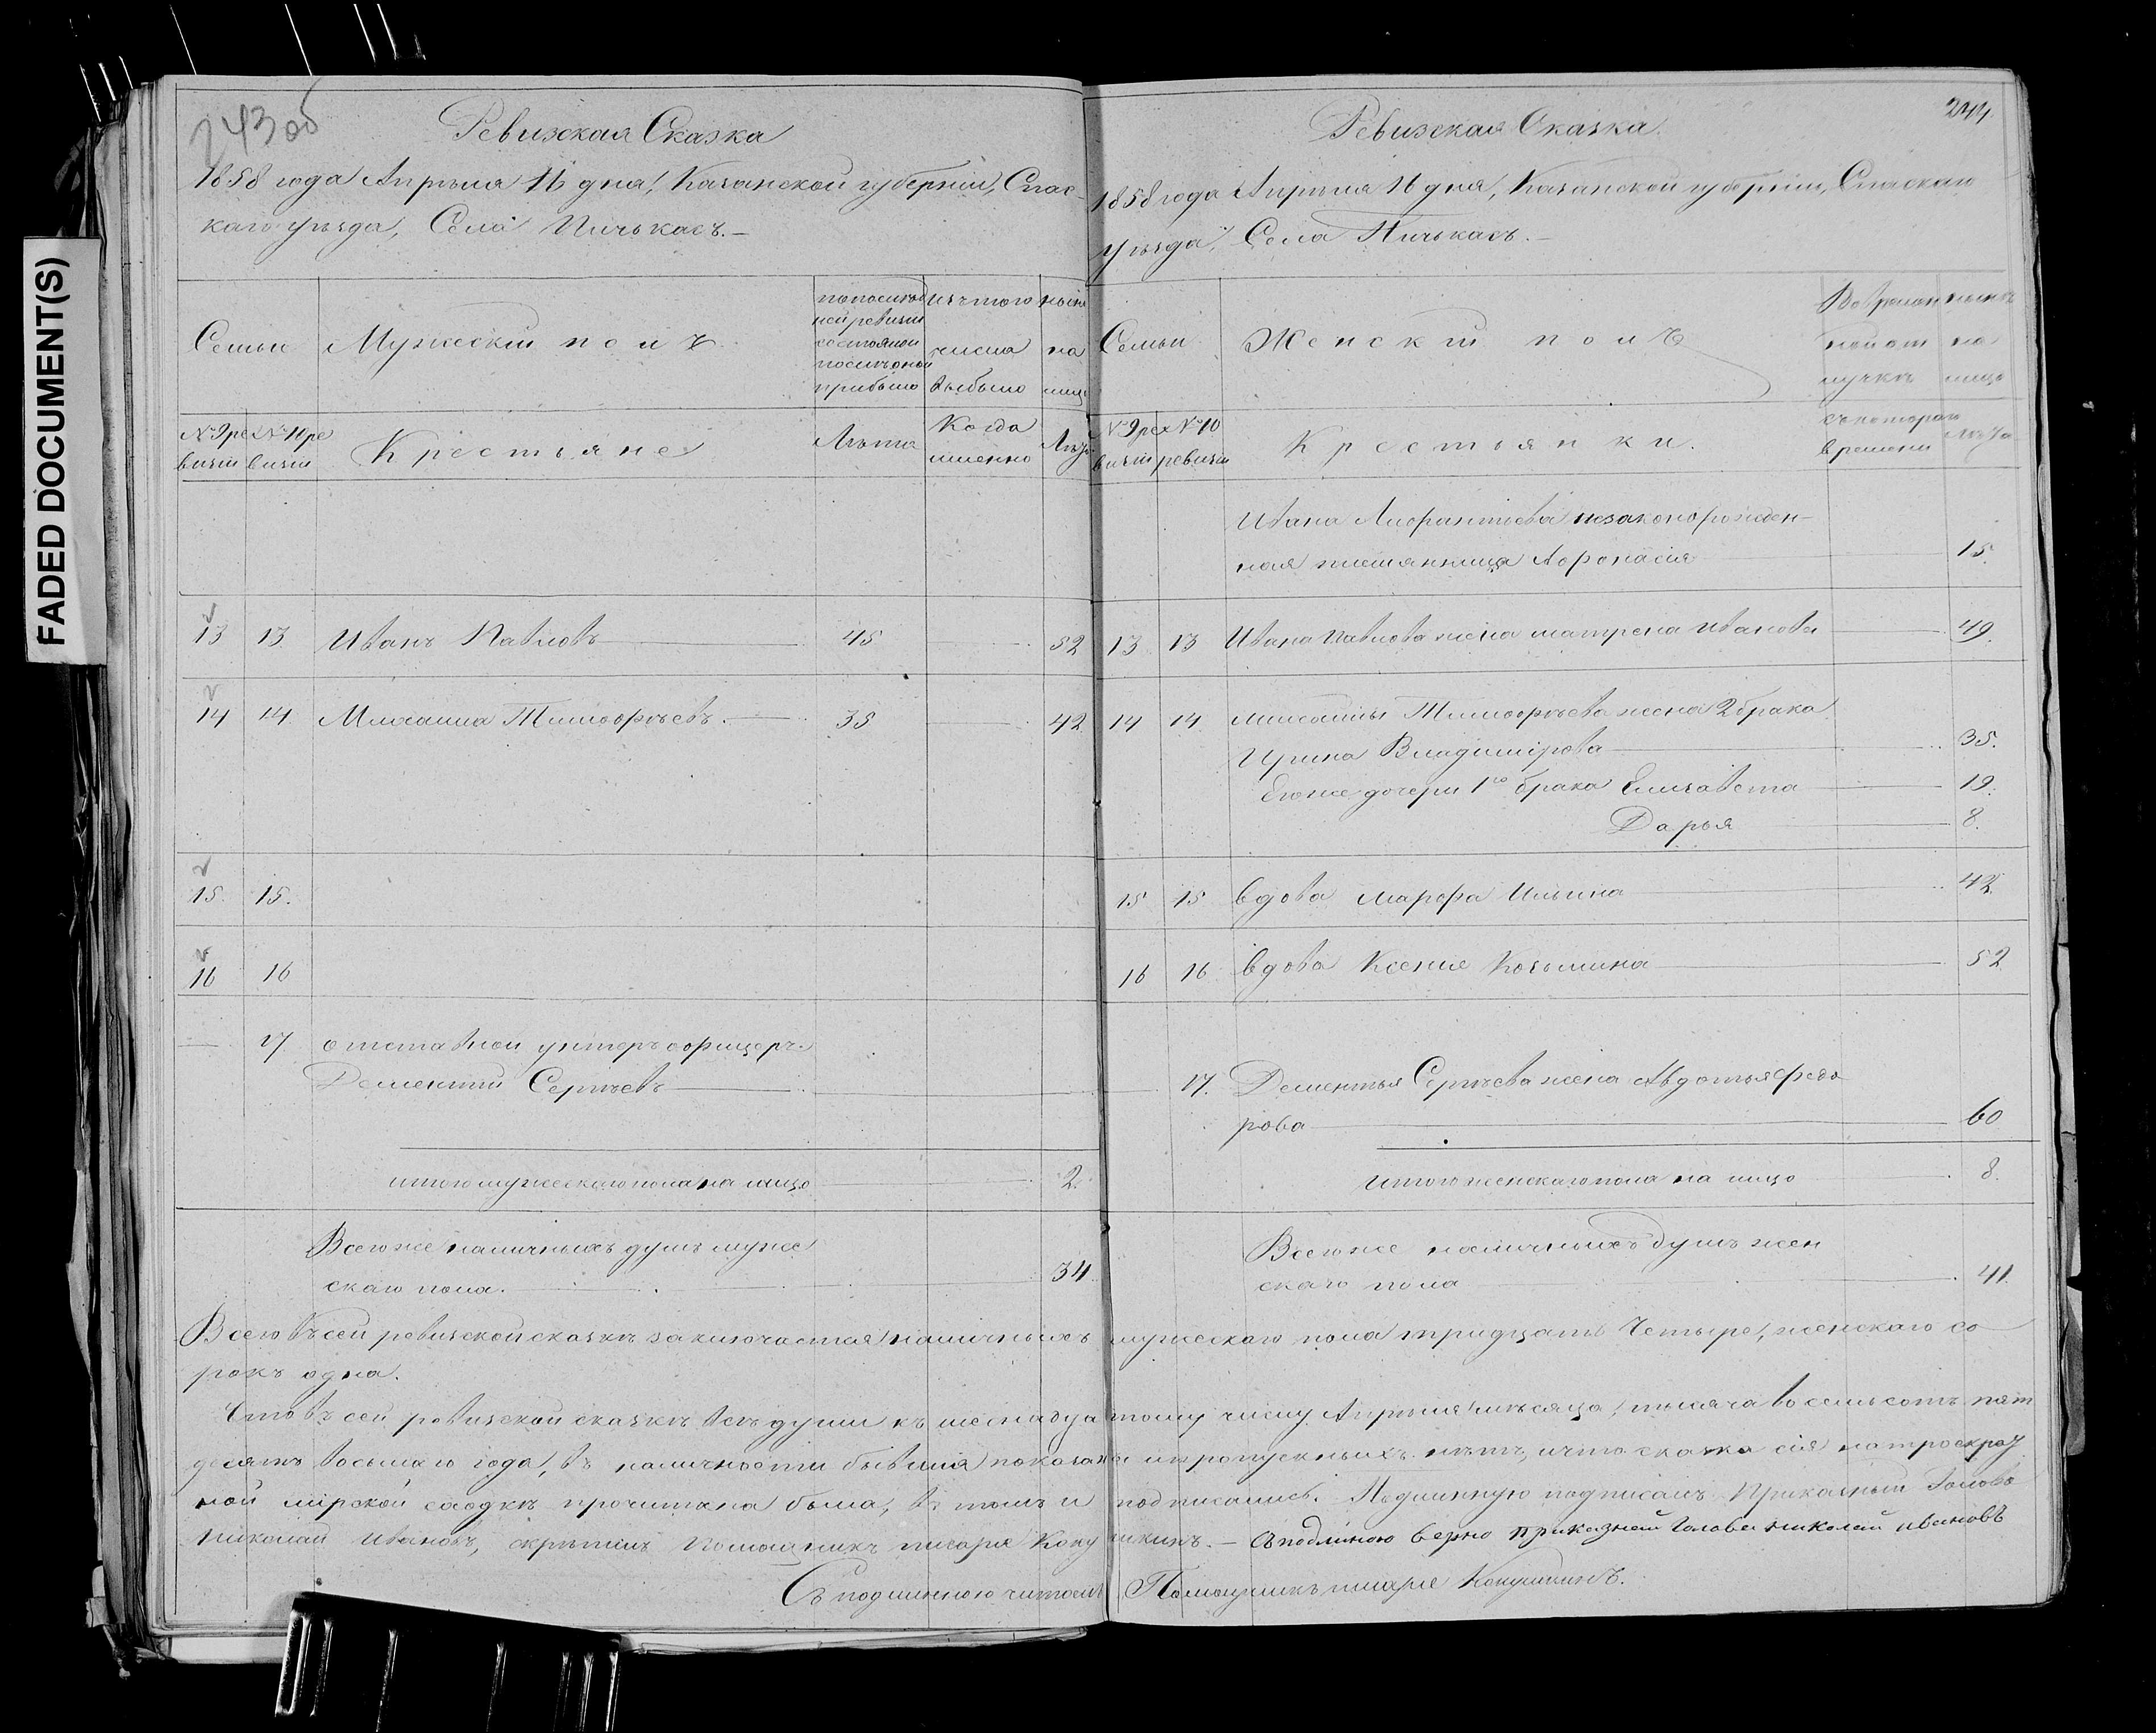 FADED DOCUMENT(S)
243об
Ревизская Сказка
1858 года Апрѣля 16 дня, Казанской губерніи, Спас-
каго уѣзда, Села Пичькасъ.-
Семьи
Мужескій полъ
по послѣд
ней ревизіи
состояло и
послѣ оной
прибыло
изъ того
числа
выбыло
нынѣ
на
лицо
№ 9 ре
визіи
№ 10 ре
визіи
Крестьяне
Лѣта
Когда
именно
Лѣта
13 13. Иванъ Павловъ 45 52
14 14 Михаила Тимофѣевъ. 35 42
15. 15.
16 16
17 отставной унтеръ офицеръ
Дементій Сергѣевъ
итого мужескаго пола на лицо 2.
Всего же наличныхъ душъ муже
скаго пола. 34
244
Ревизская Сказка
1858 года Апрѣля 16 дня, Казанской губерніи, Спаскаго
уѣзда, Села Пичькасъ.-
Семьи
Женскій полъ
Во времен
ной от
лучкѣ
нынѣ
на
лицо
№ 9 ре
визіи
№ 10
ревизіи
Крестьянки.
съ котораго
времени
Лѣта
Ивана незаконорожден-
ная племянница Афонасія 15.
13 13 Ивана Павлова жена Матрена Иванова 49.
14 14 Михаилы Тимофѣева жена 2 брака
Ирина Владимірова 35.
Егоже дочери 1го брака Елизавета 19.
Дарья 8.
15 15 вдова Марфа Ильина 42
16 16 вдова Ксенія Козьмина 52
17. Дементья Сергѣева жена Авдотья Федо
рова 60
итого женскаго пола на лицо 8.
Всего же наличныхъ душъ жен
скаго пола 41.
Всего въ сей ревизской сказкѣ заключается наличныхъ мужескаго пола тридцать четыре, женскаго со
рокъ одна.
Что въ сей ревизской сказкѣ всѣ души къ шеснадцатому числу Апрѣля мѣсяца, тысяча восемьсотъ пят
десятъ восьмаго года, въ наличности бывшія показаны и пропускныхъ нѣтъ, и что сказка сія на
ной мірской сходкѣ прочитана была, въ томъ и подписались. Подлинную подписалъ Приказный Голова
Николай Ивановъ, скрѣпилъ Помощникъ писаря Кокушкинъ.- Съ подлиною верно Приказной Голова николай ивановъ
Съ подлинною читалъ Помощникъ писаря Кокушкинъ.